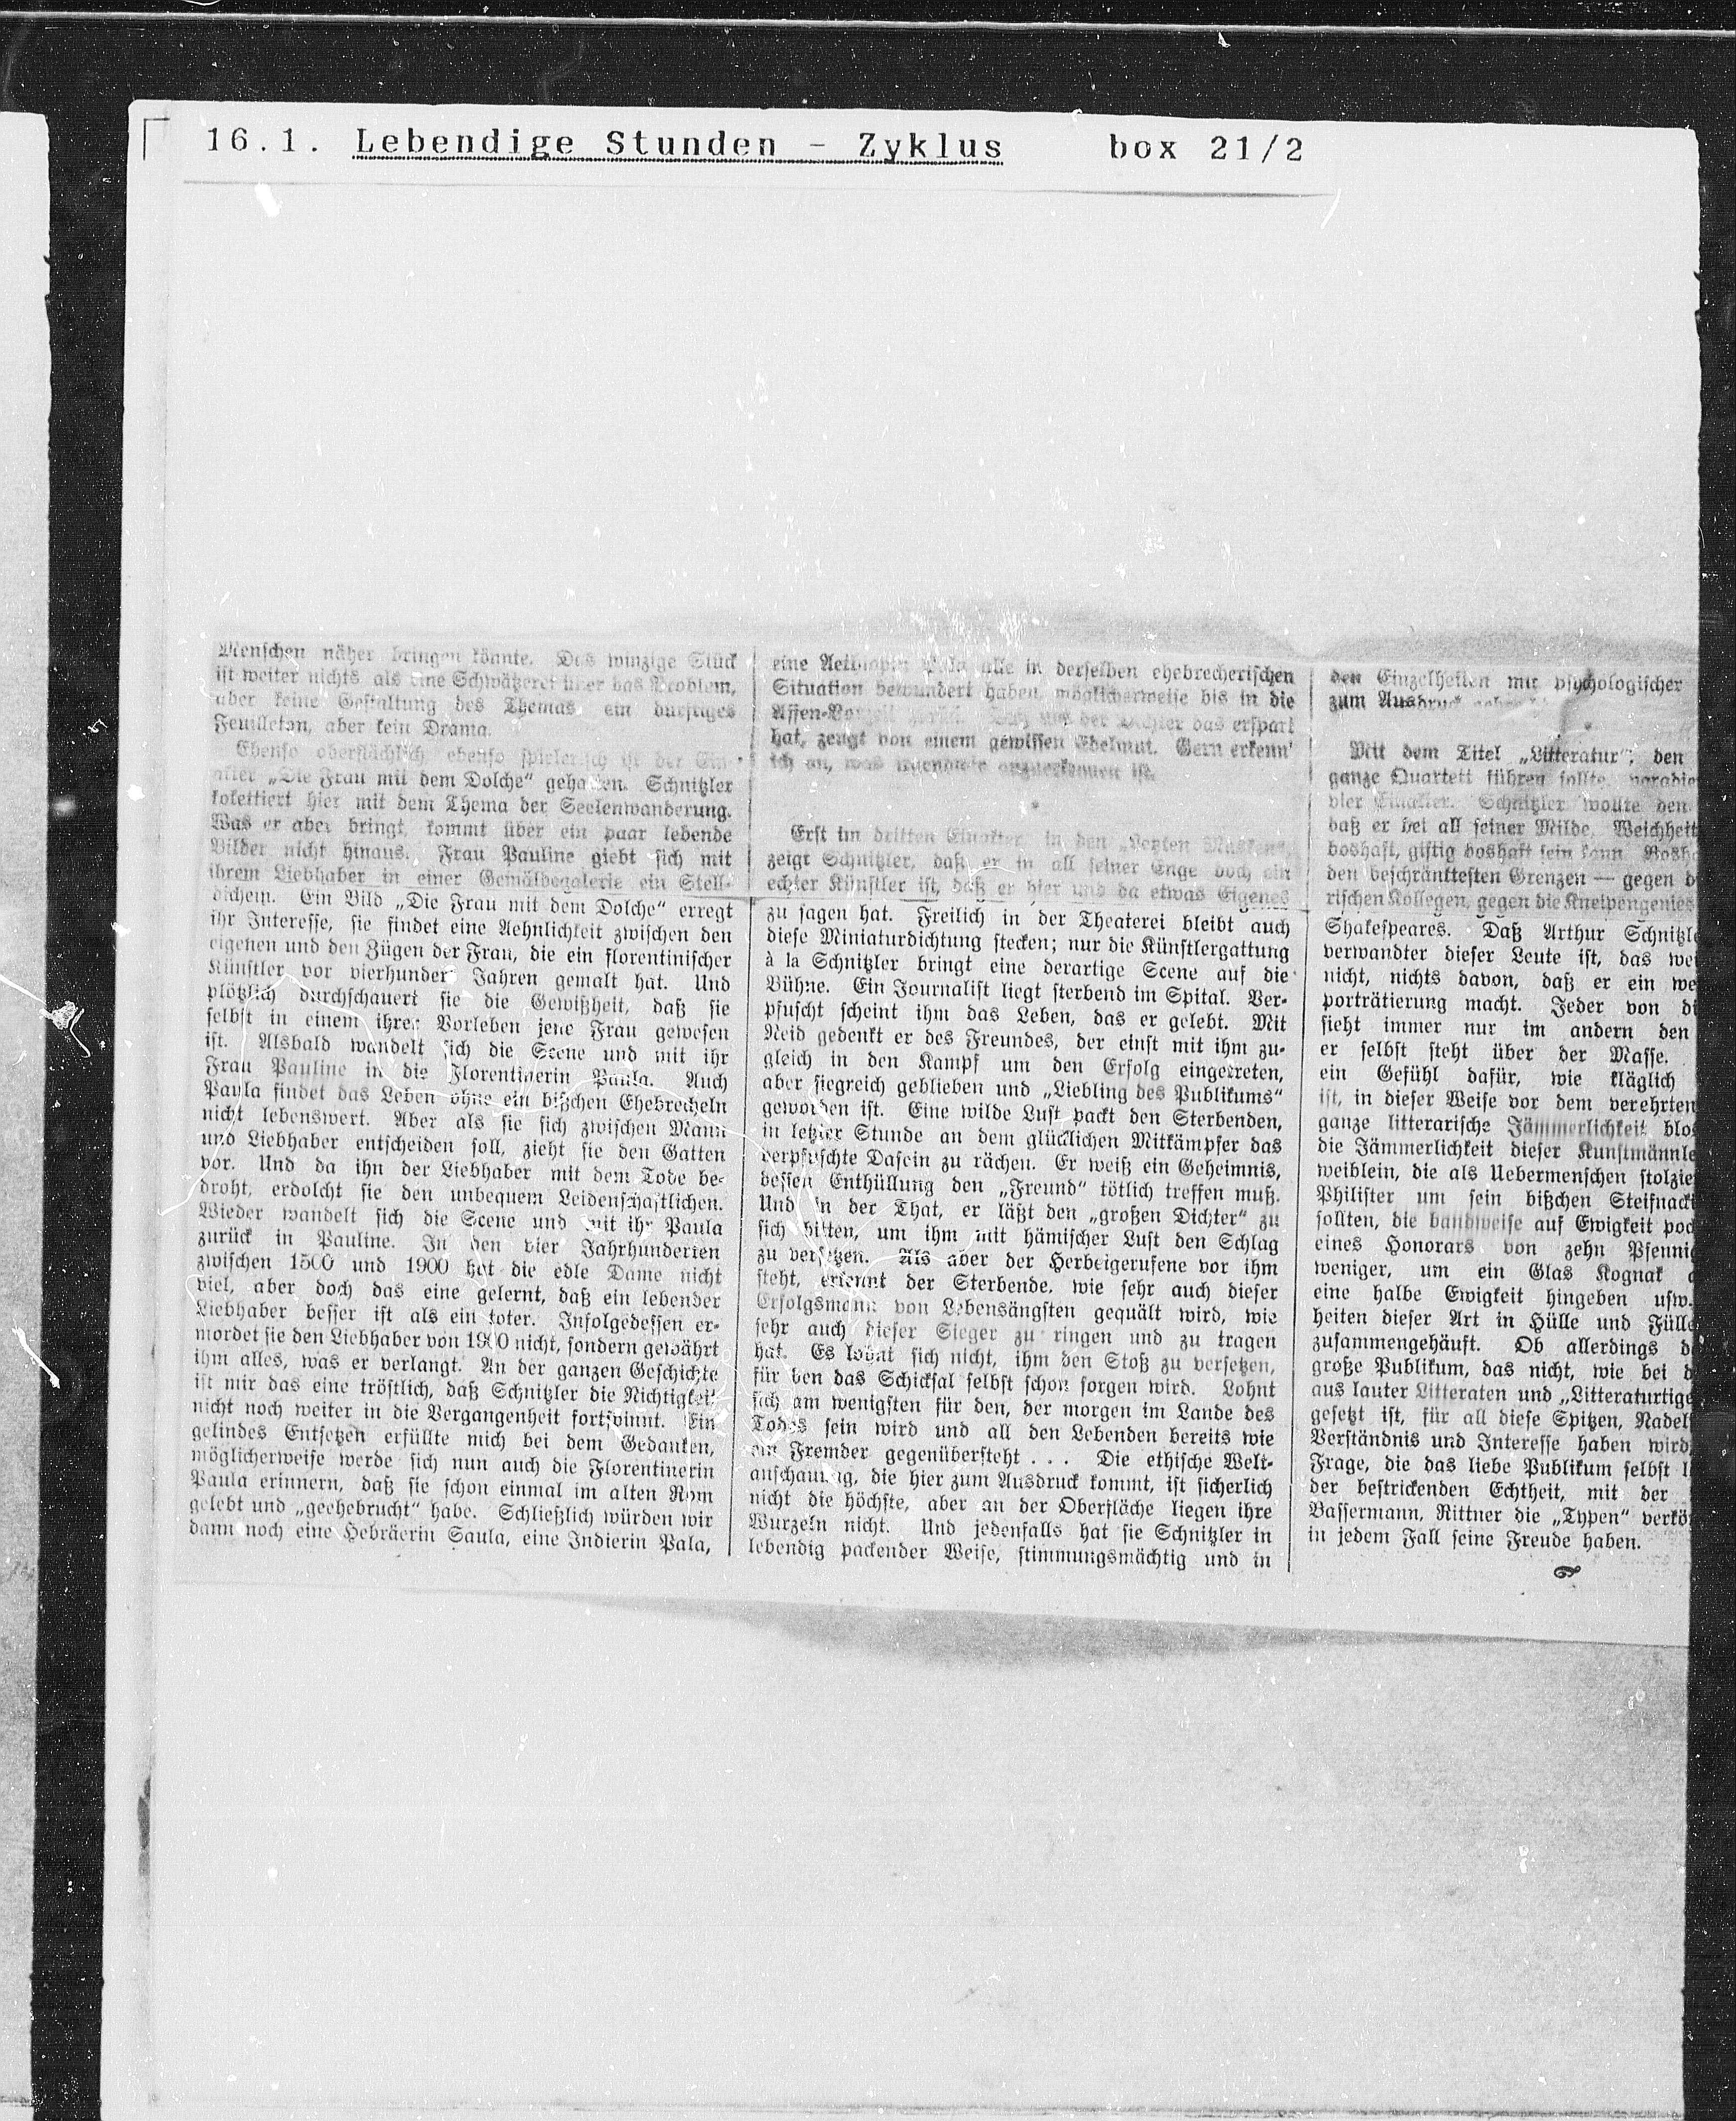 16.1. Lebendige Stunden - Zyklus box 21/2
Menschen näher bringen könnte. Das winzige Stück
ist weiter nichts als eine Schwätzerei über das Problem,
aber keine Gestaltung des Themas ein durftiges
Feuilleton, aber kein Drama.
Ebenso oberflächlich ebenso spielerisch ist der Ein-
akter „Die Frau mit dem Dolche“ gehalten. Schnitzler
kokettiert hier mit dem Thema der Seelenwanderung.
Was er aber bringt, kommt über ein paar lebende
Bilder nicht hinaus. Frau Pauline giebt sich mit
ihrem Liebhaber in einer Gemäldegalerie ein Stell-
dichein. Ein Bild „Die Frau mit dem Dolche“ erregt
ihr Interesse, sie findet eine Aehnlichkeit zwischen den
eigenen und den Zügen der Frau, die ein florentinischer
Künstler vor vierhundert Jahren gemalt hat. Und
plötzlich durchschauert sie die Gewißheit, daß sie
selbst in einem ihrer Vorleben jene Frau gewesen
ist. Alsbald wandelt sich die Scene und mit ihr
Frau Pauline in die Florentinerin Paula. Auch
Paula findet das Leben ohne ein bißchen Ehebrecheln
nicht lebenswert. Aber als sie sich zwischen Mann
und Liebhaber entscheiden soll, zieht sie den Gatten
vor. Und da ihn der Liebhaber mit dem Tode be-
droht, erdolcht sie den unbequem Leidenschaftlichen.
Wieder wandelt sich die Scene und mit ihr Paula
zurück in Pauline. In den vier Jahrhunderten
zwischen 1500 und 1900 hat die edle Dame nicht
viel, aber doch das eine gelernt, daß ein lebender
Liebhaber besser ist als ein toter. Infolgedessen er-
mordet sie den Liebhaber von 1900 nicht, sondern gewährt
ihm alles, was er verlangt. An der ganzen Geschichte
ist mir das eine tröstlich, daß Schnitzler die Nichtigkeit
nicht noch weiter in die Vergangenheit fortspinnt. Ein
gelindes Entsetzen erfüllte mich bei dem Gedanken,
möglicherweise werde sich nun auch die Florentinerin
Paula erinnern, daß sie schon einmal im alten Rom
gelebt und „geehebrucht“ habe. Schließlich würden wir
dann noch eine Hebräerin Saula, eine Indierin Pala,
eine alle in derselben ehebrecherischen
Situation bewundert haben, möglicherweise bis in die
Affen- der das erspart
hat, zeugt von einem gewissen Edelmut. Gern erkenn'
ich an, was irgendwie anzuerkennen ist.
*
Erst im dritten Einakter, in den „Letzten Masken“,
zeigt Schnitzler, daß er in all seiner Enge doch ein
echter Künstler ist, daß er hier und da etwas Eigenes
zu sagen hat. Freilich in der Theaterei bleibt auch
diese Miniaturdichtung stecken; nur die Künstlergattung
à la Schnitzler bringt eine derartige Scene auf die
Bühne. Ein Journalist liegt sterbend im Spital. Ver-
pfuscht scheint ihm das Leben, das er gelebt. Mit
Neid gedenkt er des Freundes, der einst mit ihm zu-
gleich in den Kampf um den Erfolg eingetreten,
aber siegreich geblieben und „Liebling des Publikums“
geworden ist. Eine wilde Lust packt den Sterbenden,
in letzter Stunde an dem glücklichen Mitkämpfer das
verpfuschte Dasein zu rächen. Er weiß ein Geheimnis,
dessen Enthüllung den „Freund“ tötlich treffen muß.
Und in der That, er läßt den „großen Dichter“ zu
sich bitten, um ihm mit hämischer Lust den Schlag
zu versetzen. Als aber der Herbeigerufene vor ihm
steht, erkennt der Sterbende, wie sehr auch dieser
Erfolgsmann von Lebensängsten gequält wird, wie
sehr auch dieser Sieger zu ringen und zu tragen
hat. Es lohnt sich nicht, ihm den Stoß zu versetzen,
für den das Schicksal selbst schon sorgen wird. Lohnt
sich am wenigsten für den, der morgen im Lande des
Todes sein wird und all den Lebenden bereits wie
ein Fremder gegenübersteht . . . Die ethische Welt-
anschauung, die hier zum Ausdruck kommt, ist sicherlich
nicht die höchste, aber an der Oberfläche liegen ihre
Wurzeln nicht. Und jedenfalls hat sie Schnitzler in
lebendig packender Weise, stimmungsmächtig und in
den Einzelheiten mit psychologischer
zum Ausdruck
Mit dem Titel „Litteratur“, den
ganze Quartett führen sollte, parodie
vier Einakter. Schnitzler wollte den
daß er bei all seiner Milde, Weichheit
boshaft, giftig boshaft sein kann Bosh
den beschränktesten Grenzen — gegen d
rischen Kollegen, gegen die Kneipengenies
Shakespeares. Daß Arthur Schnitzl
verwandter dieser Leute ist, das we
nicht, nichts davon, daß er ein we
porträtierung macht. Jeder von di
sieht immer nur im andern den
er selbst steht über der Masse.
ein Gefühl dafür, wie kläglich
ist, in dieser Weise vor dem verehrten
ganze litterarische Jämmerlichkeit blos
die Jämmerlichkeit dieser Kunstmännle
weiblein, die als Uebermenschen stolzie
Philister um sein bißchen Steifnacki
sollten, die bandweise auf Ewigkeit poc
eines Honorars von zehn Pfennig
weniger, um ein Glas Kognak
eine halbe Ewigkeit hingeben usw.
heiten dieser Art in Hülle und Fülle
zusammengehäuft. Ob allerdings d
große Publikum, das nicht, wie bei d
aus lauter Litteraten und „Litteraturtige
gesetzt ist, für all diese Spitzen, Nadel
Verständnis und Interesse haben wird,
Frage, die das liebe Publikum selbst l
der bestrickenden Echtheit, mit der
Bassermann, Rittner die „Typen“ verkö
in jedem Fall seine Freude haben.